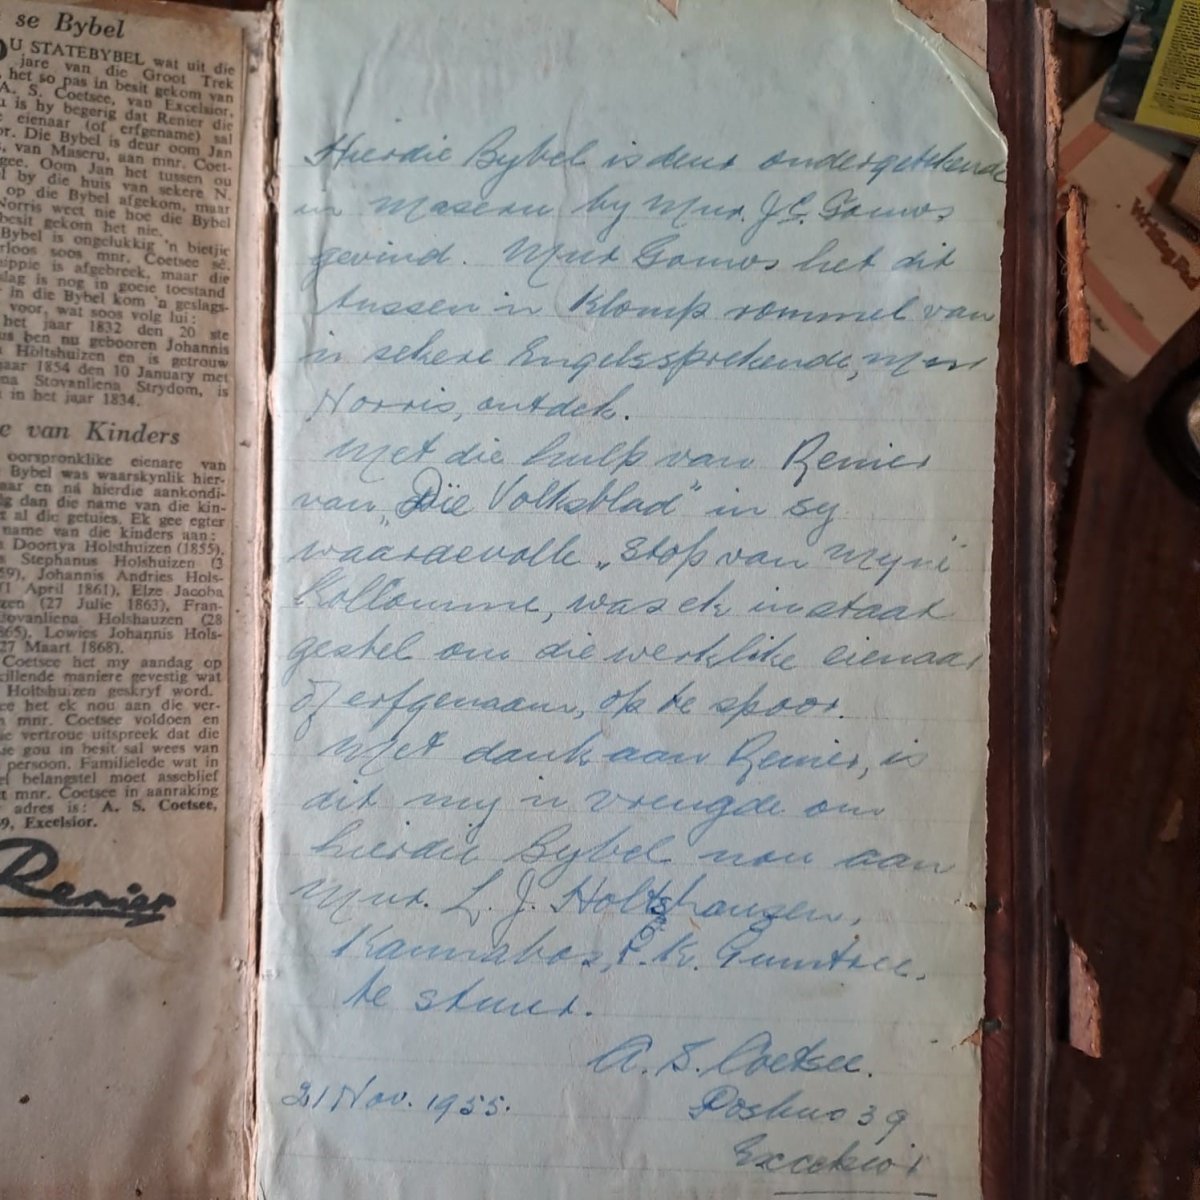 se Bybel
OU STATEBYBEL wat uit die
jare van die Groot Trek
het so pas in besit gekom van
A. S. Coetsee, van Excelsior,
u is hy begerig dat Renier die
eienaar (of erfgename) sal
or. Die Bybel is deur oom Jan
, van Maseru, aan mnr. Coet-
gee. Oom Jan het tussen ou
el by die huis van sekere N.
op die Bybel afgekom, maar
Norris weet nie hoe die Bybel
besit gekom het nie.
Bybel is ongelukkig 'n bietjie
rloos soos mnr. Coetsee sê.
uippie is afgebreek, maar die
slag is nog in goeie toestand
r in die Bybel kom 'n geslags-
voor, wat soos volg lui:
het jaar 1832 den 20 ste
us ben nu gebooren Johannis
Holtshuizen en is getrouw
jaar 1854 den 10 January met
na Stovanliena Strydom, is
in het jaar 1834.
e van Kinders
oorspronklike eienare van
Bybel was waarskynlik hier-
aar en ná hierdie aankondi-
g dan die name van die kin-
t al die getuies. Ek gee egter
name van die kinders aan:
Doortya Holsthuizen (1855),
Stephanus Holshuizen (3
59), Johannis Andries Hols-
(1 April 1861), Elze Jacoba
zen (27 Julie 1863), Fran-
Stovanliena Holshauzen (28
865), Lowies Johannis Hols-
27 Maart 1868).
Coetsee het my aandag op
killende maniere gevestig wat
Holtshuizen geskryf word.
ee het ek nou aan die ver-
n mnr. Coetsee voldoen en
ie vertroue uitspreek dat die
se gou in besit sal wees van
persoon. Familielede wat in
el belangstel moet asseblief
t mnr. Coetsee in aanraking
adres is: A. S. Coetsee,
39, Excelsior.
Renier
Hierdie Bybel is deur ondergetekende
in Maseru by Mnr. J.C. Gouws
gevind. Mnr Gouws het dit
tussen 'n klomp rommel van
'n sekere Engelssprekende, Mnr
Norris, ontdek.
Met die hulp van Renier
van „Die Volksblad" in sy
waardevolle „Stop van Myne"
Kollomme, was ek instaat
gestel om die werklike eienaar
of erfgenaam, op te spoor.
Met dank aan Renier, is
dit my 'n vreugde om
hierdie Bybel nou aan
Mnr. L. J. Holtshauzen,
Kannabos, P.K. Gumtree,
te stuur.
A. S. Coetsee.
21 Nov. 1955.
Posbus 39
Excelsior